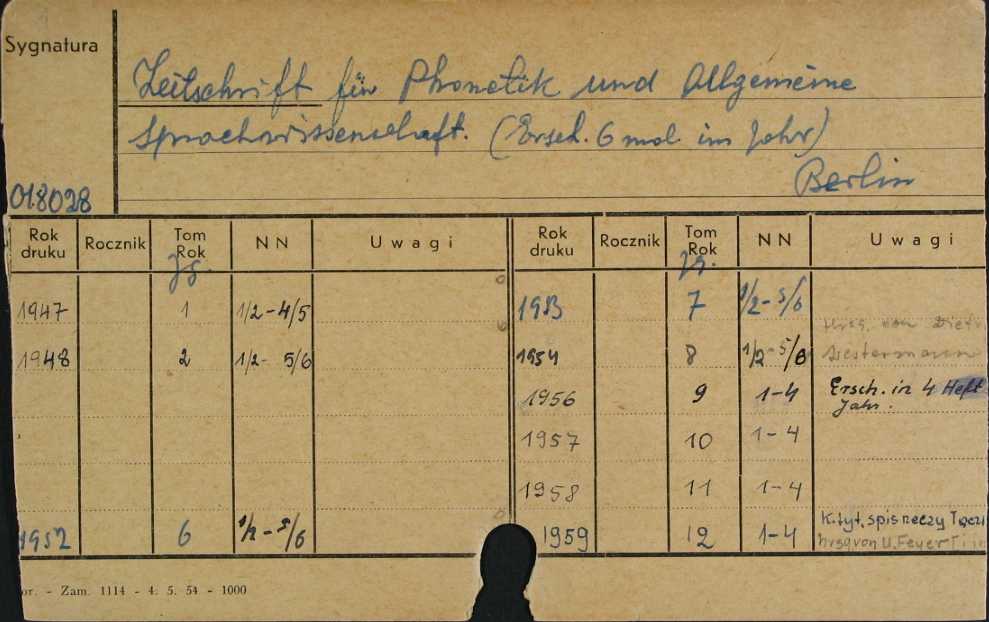 Sygnatura
Zeitschrift für Phonetik und Allgemeine
Sprachwissenschaft. (Ersch. 6 mal. im Jahr)
Berlin
018028
Rok druku Rocznik Tom Rok NN Uwagi Rok druku Rocznik Tom Rok NN Uwagi
Jg. Jg.
1947 1 1/2-4/5 1953 7 1/2-5/6
Hrsg. von Dietr.
1948 2 1/2-5/6 1954 8 1/2-5/6 Westermann
1956 9 1-4 Ersch. in 4 Heft
Jahr.
1957 10 1-4
1958 11 1-4
1952 6 1/2-5/6 1959 12 1-4 K.tyt. spis rzeczy
hrsg von U. Feyer
or. - Zam. 1114 - 4. 5. 54 - 1000